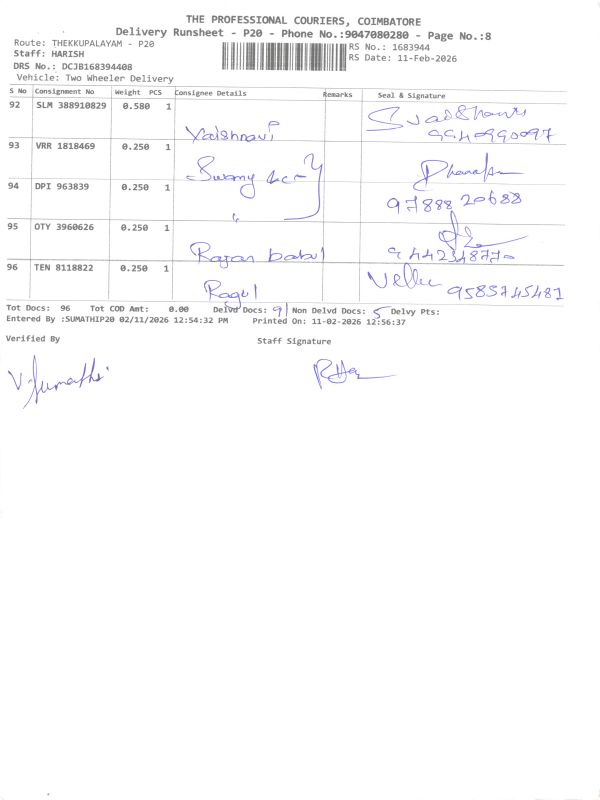 THE PROFESSIONAL COURIERS, COIMBATORE
Delivery Runsheet - P20 - Phone No.:9047080280 - Page No.:8
Route: THEKKUPALAYAM - P20
RS No.: 1683944
Staff: HARISH
RS Date: 11-Feb-2026
DRS No.: DCJB168394408
Vehicle: Two Wheeler Delivery
S No Consignment No Weight PCS Consignee Details Remarks Seal & Signature
92 SLM 388910829 0.580 1 Vaishnavi 9940990097
93 VRR 1818469 0.250 1 Swamy
94 DPI 963839 0.250 1 " 97888 20688
95 OTY 3960626 0.250 1 Rajan babu 9442348770
96 TEN 8118822 0.250 1 Ragul 9585745481
Tot Docs: 96 Tot COD Amt: 0.00 Delvd Docs: 91 Non Delvd Docs: 5 Delvy Pts:
Entered By :SUMATHIP20 02/11/2026 12:54:32 PM Printed On: 11-02-2026 12:56:37
Verified By Staff Signature
V. Sumathi